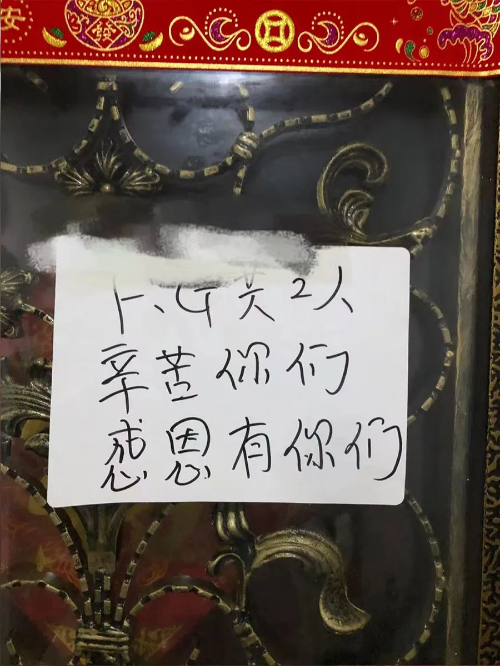 安 發
共2人
辛苦你们
感恩有你们